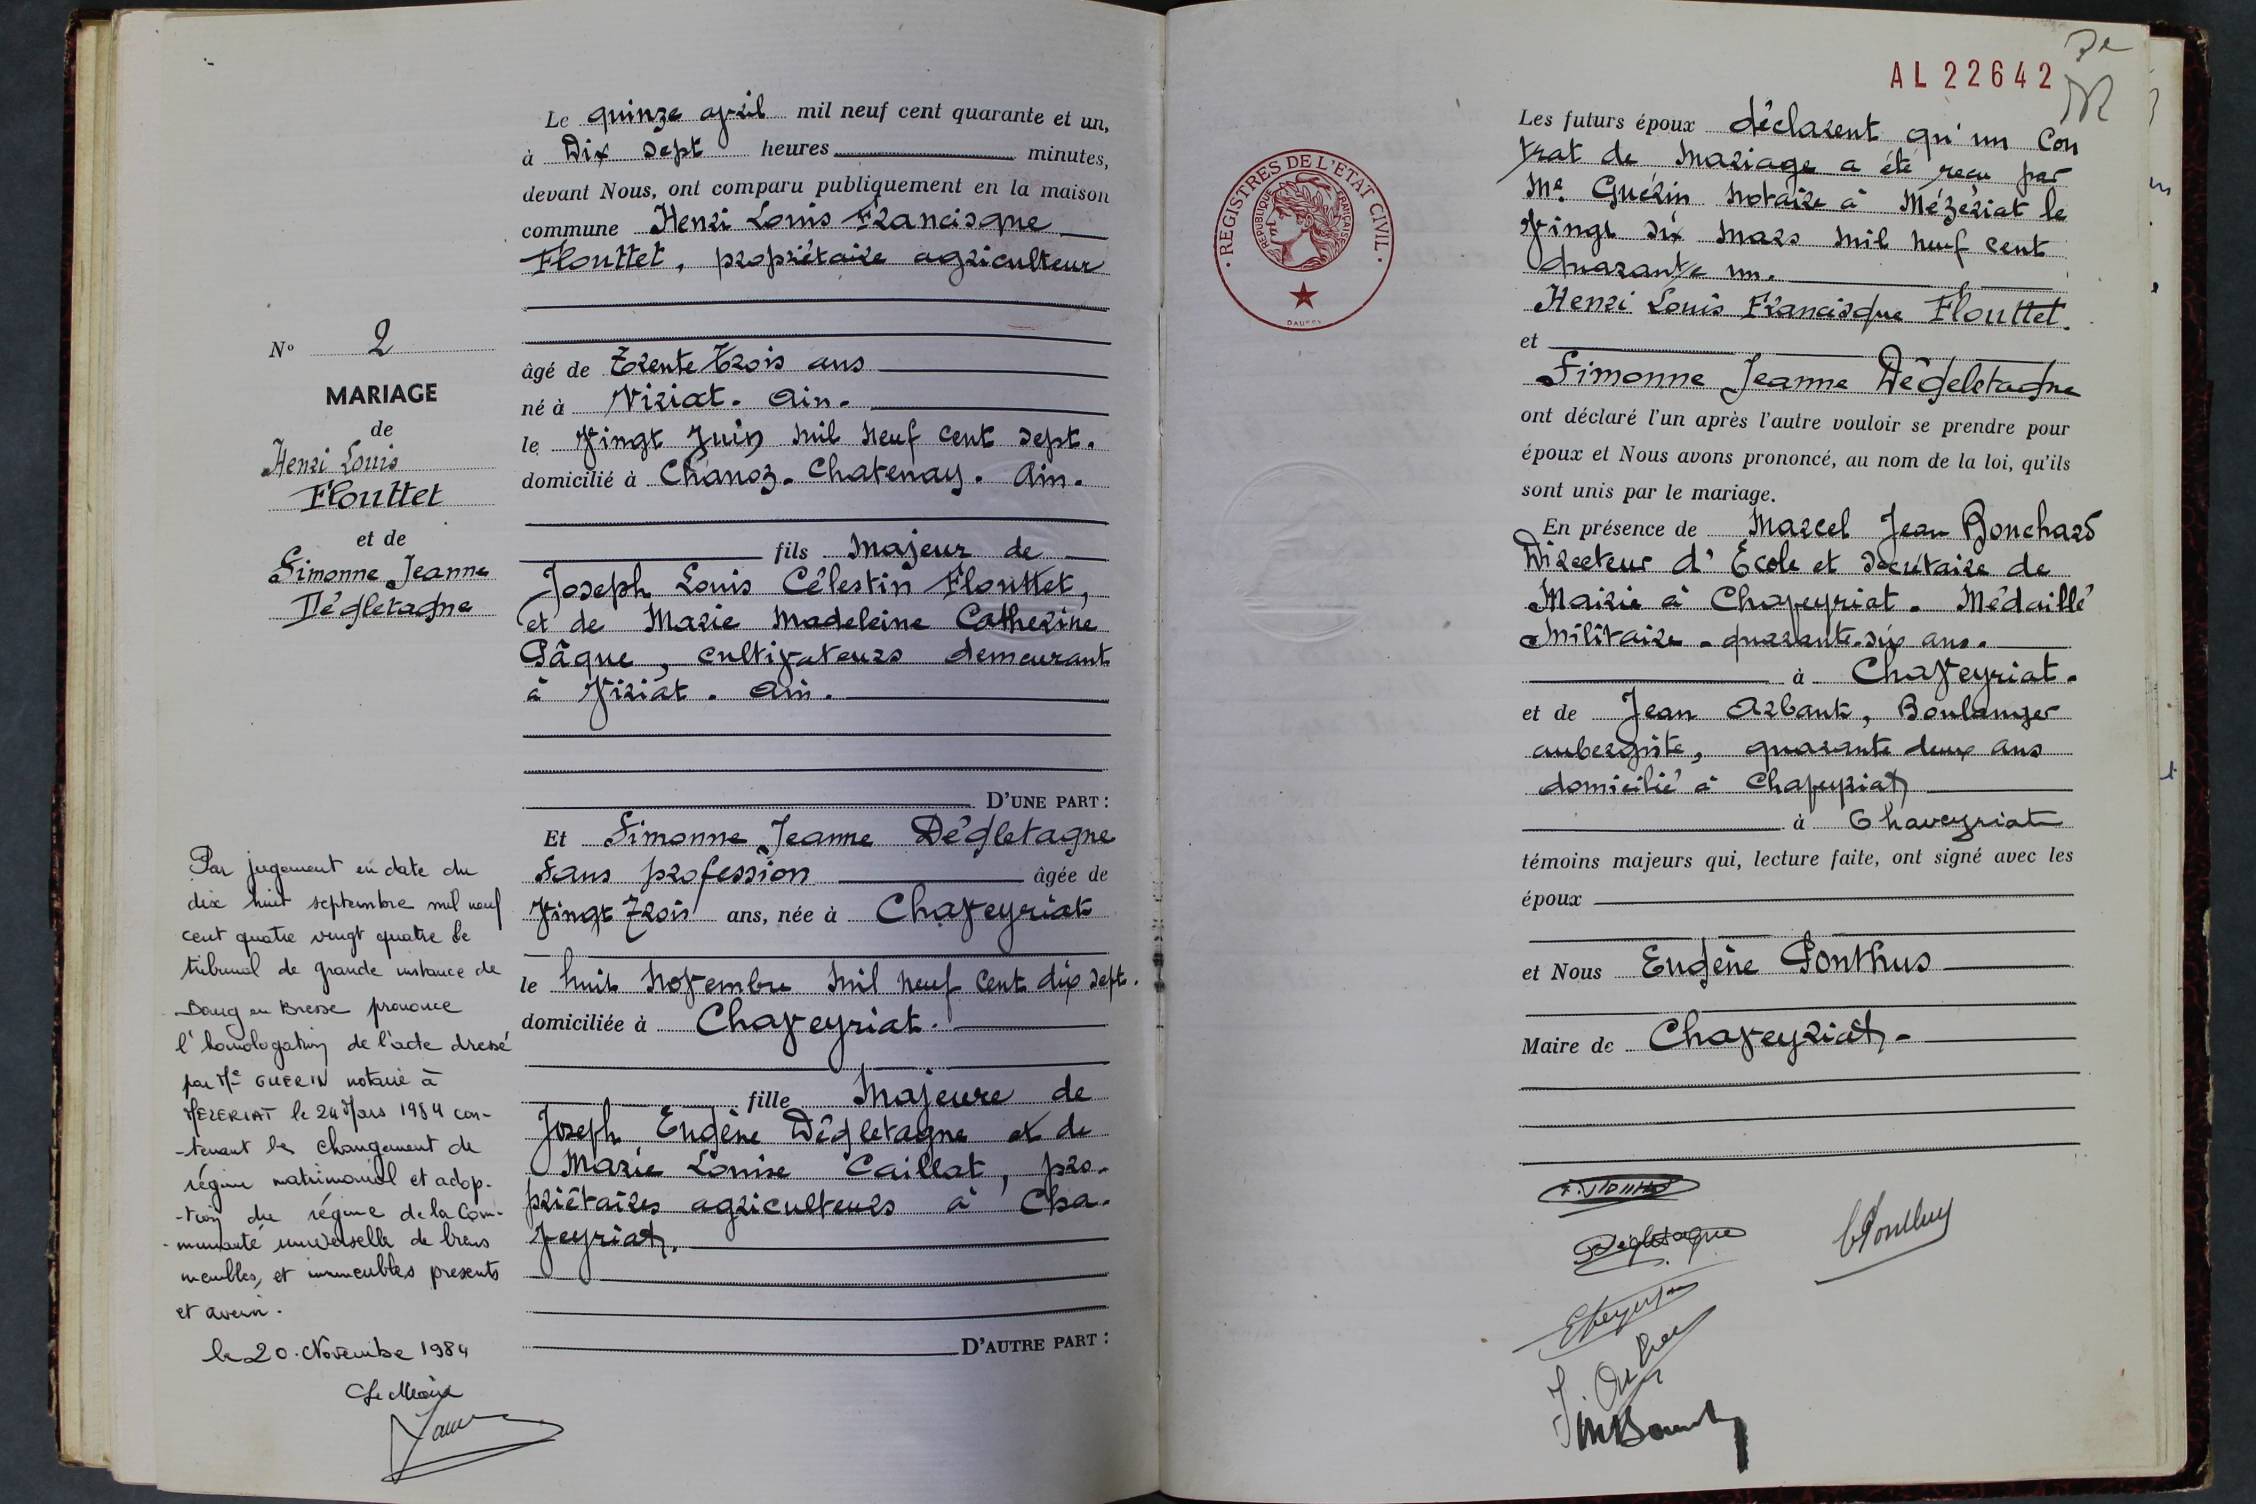 N° 2
MARIAGE
de
Henri Louis
Flouttet
et de
Simonne Jeanne
Dégletagne
Par jugement en date du
dix huit septembre mil neuf
cent quatre vingt quatre le
tribunal de grande instance de
Bourg en Bresse prononce
l'homologation de l'acte dressé
par Me GUERIN notaire à
MEZERIAT le 24 Mars 1984 con-
-tenant le changement de
régime matrimonial et adop-
-tion du régime de la Com-
-munauté universelle de biens
meubles, et immeubles présents
et avenir.
le 20 Novembre 1984
Le Maire
Le quinze avril mil neuf cent quarante et un,
à Dix sept heures minutes,
devant Nous, ont comparu publiquement en la maison
commune Henri Louis Francisque
Flouttet, propriétaire agriculteur
âgé de Trente trois ans
né à Viriat. Ain.
le Vingt Juin mil neuf cent sept.
domicilié à Chanoz-Chatenay. Ain.
fils majeur de
Joseph Louis Célestin Flouttet,
et de Marie Madeleine Catherine
Pâque, cultivateurs demeurant
à Viriat. Ain.
D'UNE PART :
Et Simonne Jeanne Dégletagne
Sans profession âgée de
Vingt Trois ans, née à Chaveyriat
le huit Novembre mil neuf cent dix sept.
domiciliée à Chaveyriat.
fille Majeure de
Joseph Eugène Dégletagne et de
Marie Louise Caillat, pro-
priétaires agriculteurs à Cha-
veyriat.
D'AUTRE PART :
AL22642
REGISTRES DE L'ÉTAT CIVIL
REPUBLIQUE FRANÇAISE
Les futurs époux déclarent qu'un Con
trat de Mariage a été reçu par
Me Guérin notaire à Mézériat le
Vingt six mars mil neuf cent
quarante un.
Henri Louis Francisque Flouttet.
et
Simonne Jeanne Dégletagne
ont déclaré l'un après l'autre vouloir se prendre pour
époux et Nous avons prononcé, au nom de la loi, qu'ils
sont unis par le mariage.
En présence de Marcel Jean Bonchard
Directeur d'Ecole et Secrétaire de
Mairie à Chaveyriat. Médaillé
Militaire - quarante-six ans.
à Chaveyriat.
et de Jean Arbant, Boulanger
aubergiste, quarante deux ans
domicilié à Chaveyriat
à Chaveyriat
témoins majeurs qui, lecture faite, ont signé avec les
époux
et Nous Eugène Ponthus
Maire de Chaveyriat.
Dégletagne